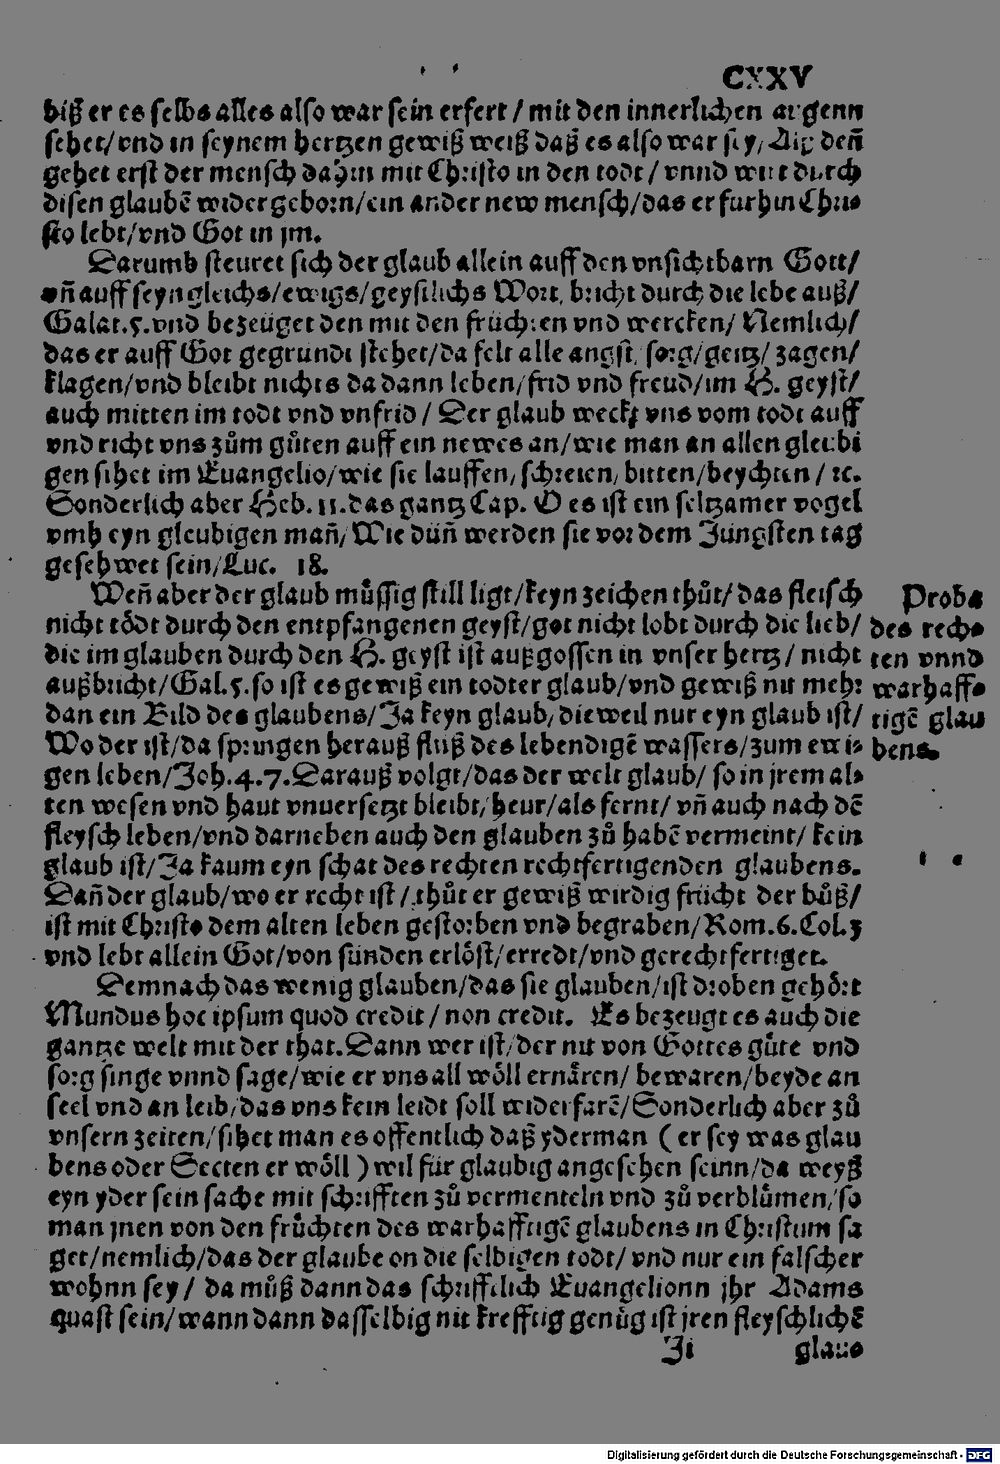 CXXV
biß er es selbs alles also war sein erfert / mit den innerlichen augenn
sehet/ vnd in seynem hertzen gewiß weiß daß es also war sey/ Als deñ
gehet erst der mensch dahin mit Christo in den todt / vnnd wirt durch
disen glaubẽ widergeborn/ ein ander new mensch/ das er furhin Chri-
sto lebt/ vnd Got in jm.
Darumb steuret sich der glaub allein auff den vnsichtbarn Gott/
vñ auff seyn gleichs/ ewigs/ geystlichs Wort, bricht durch die lebe auß/
Galat.5. vnd bezeuget den mit den früchten vnd wercken/ Nemlich/
das er auff Got gegrundt stehet/ da felt alle angst, sorg/ geitz/ zagen/
klagen/ vnd bleibt nichts da dann leben/ frid vnd freud/ im H. geyst/
auch mitten im todt vnd vnfrid / Der glaub weckt vns vom todt auff
vnd richt vns zům gůten auff ein newes an/ wie man an allen gleubi
gen sihet im Euangelio/ wie sie lauffen, schreien, bitten/ beychten / ꝛc.
Sonderlich aber Heb. 11. das gantz Cap. O es ist ein seltzamer vogel
vmb eyn gleubigen mañ/ Wie düñ werden sie vor dem Jungsten tag
gesehwet sein/ Luc. 18.
Weñ aber der glaub můssig still ligt/ keyn zeichen thůt/ das fleisch
nicht tödt durch den entpfangenen geyst/ got nicht lobt durch die lieb/
die im glauben durch den H. geyst ist außgossen in vnser hertz / nicht
außbricht/ Gal.5. so ist es gewiß ein todter glaub/ vnd gewiß nit mehr
dan ein Bild des glaubens/ Ja keyn glaub, dieweil nur eyn glaub ist/
Wo der ist/ da springen herauß fluß des lebendigẽ wassers/ zum ewi-
gen leben/ Joh.4.7. Darauß volgt/ das der welt glaub/ so in jrem al-
ten wesen vnd haut vnuersetzt bleibt/ heur/ als fernt/ vñ auch nach dẽ
fleysch leben/ vnd darneben auch den glauben zů habẽ vermeint/ kein
glaub ist/ Ja kaum eyn schat des rechten rechtfertigenden glaubens.
Dañ der glaub/ wo er recht ist / thůt er gewiß wirdig frücht der bůß/
ist mit Christo dem alten leben gestorben vnd begraben/ Rom.6. Col.3
vnd lebt allein Got/ von sünden erlöst/ erredt/ vnd gerechtfertiget.
Proba
des rech-
ten vnnd
warhaff-
tigẽ glau
bens.
Demnach das wenig glauben/ das sie glauben/ ist droben gehört
Mundus hoc ipsum quod credit / non credit. Es bezeugt es auch die
gantze welt mit der that. Dann wer ist/ der nit von Gottes güte vnd
sorg singe vnnd sage/ wie er vns all wöll ernären/ bewaren/ beyde an
seel vnd an leib/ das vns kein leidt soll widerfarẽ/ Sonderlich aber zů
vnsern zeiten/ sihet man es offentlich daß yderman ( er sey was glau
bens oder Secten er wöll ) wil für glaubig angesehen seinn/ da weyß
eyn yder sein sache mit schrifften zů vermenteln vnd zů verblümen/ so
man jnen von den früchten des warhafftigẽ glaubens in Christum sa
get/ nemlich/ das der glaube on die selbigen todt/ vnd nur ein falscher
wohnn sey / da můß dann das schrifftlich Euangelionn jhr Adams
quast sein/ wann dann dasselbig nit krefftig genüg ist jren fleyschlichẽ
Ji glau-
Digitalisierung gefördert durch die Deutsche Forschungsgemeinschaft - DFG